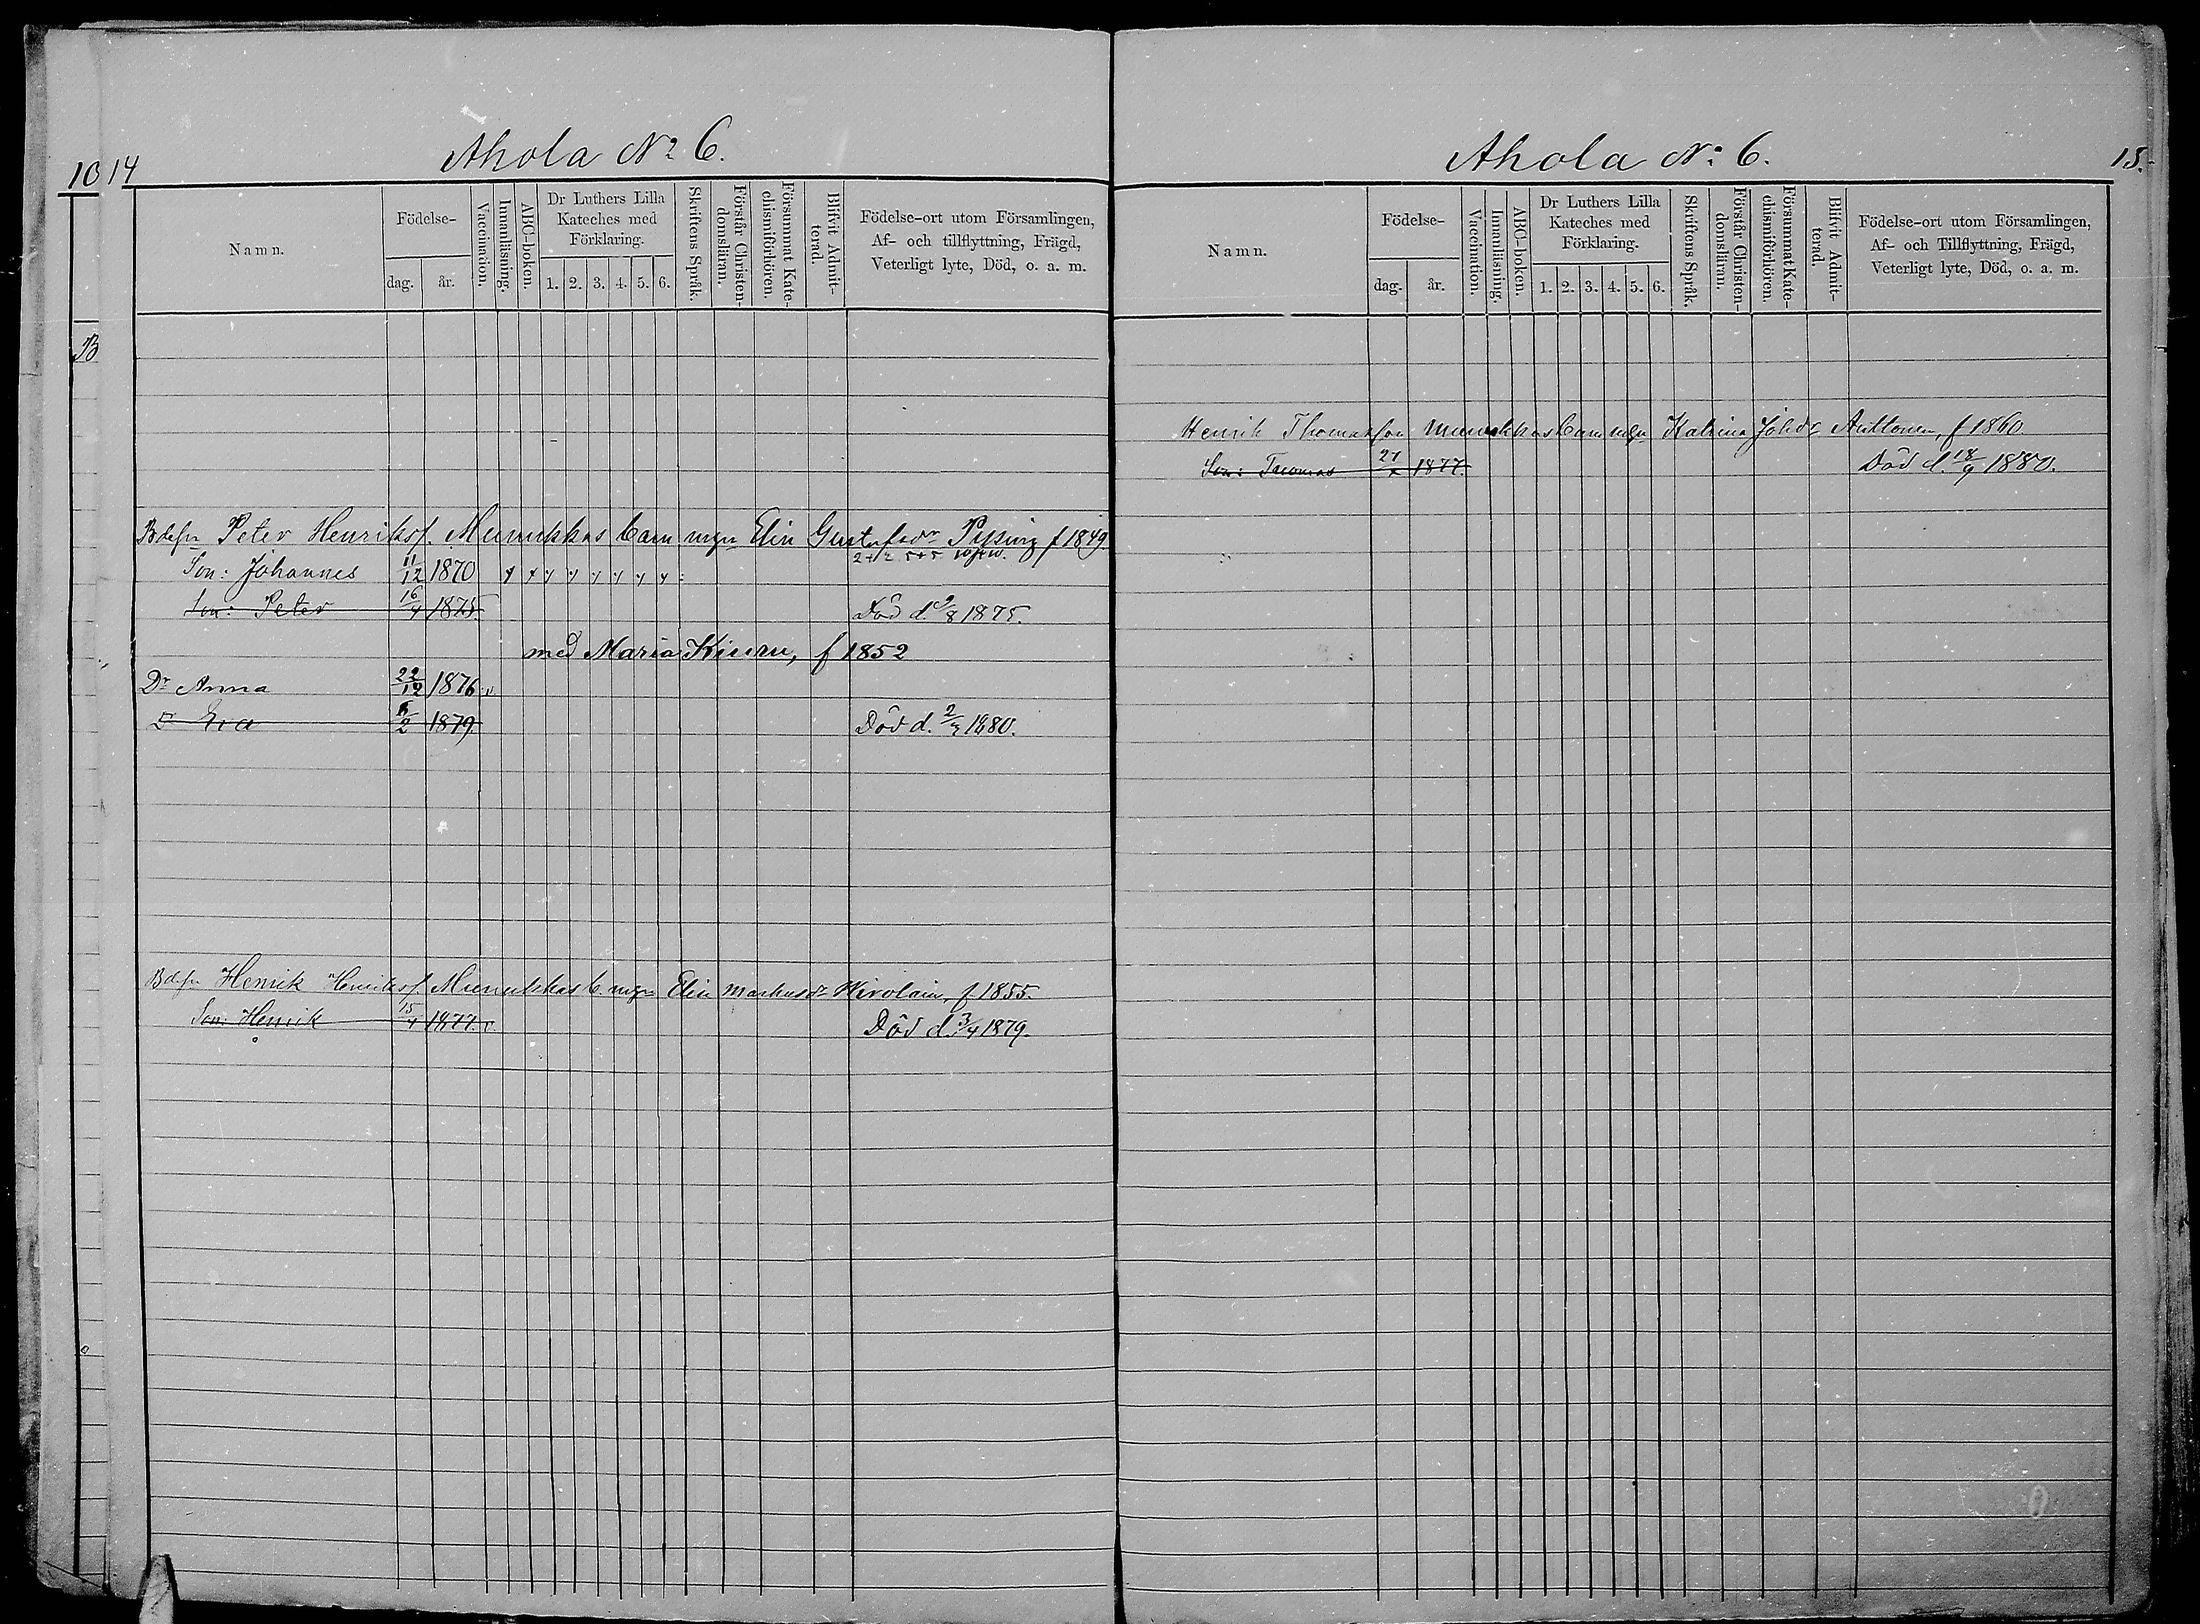 10 14
Ahola No 6.
Namn.
Födelse-
dag.
år.
Vaccination.
Innanläsning.
ABC-boken.
Dr Luthers Lilla
Kateches med
Förklaring.
1. 2. 3. 4. 5. 6.
Skriftens Språk.
Förstår Christen-
domsläran.
Försummat Kate-
chismiförhören.
Blifvit Admit-
terad.
Födelse-ort utom Församlingen,
Af- och tillflyttning, Frägd,
Veterligt lyte, Död, o. a. m.
B
Bdefr Peter Henriksf. Munukkas barn m Elin Gustafsdr f 1849.
Son: Johannes 11/12 1870
Son: Peter 16/4 1875. Död d. 9/8 1875.
med Maria Kiuru, f 1852
Dr Anna 22/12 1876
Dr Eva 6/2 1879. Död d. 2/3 1880.
Bdefr Henrik Henriksf. Munukkas b. m Elin Markusdr Hirolain, f 1855.
Son: Henrik 15/4 1877. Död d. 3/4 1879.
Ahola No 6.
15.
Namn.
Födelse-
dag.
år.
Vaccination.
Innanläsning.
ABC-boken.
Dr Luthers Lilla
Kateches med
Förklaring.
1. 2. 3. 4. 5. 6.
Skriftens Språk.
Förstår Christen-
domsläran.
Försummat Kate-
chismiförhören.
Blifvit Admit-
terad.
Födelse-ort utom Församlingen,
Af- och Tillflyttning, Frägd,
Veterligt lyte, Död, o. a. m.
Henrik Thomasson Munukkas barn m Katrina Johdr Anttonen, f 1860.
Son: Thomas 1877. Död d. 18/9 1880.